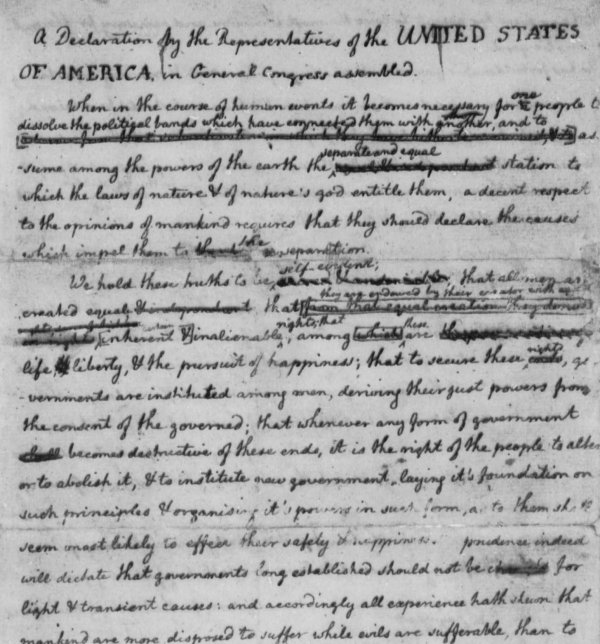 A Declaration by the Representatives of the UNITED STATES
OF AMERICA, in General Congress assembled.
When in the course of human events it becomes necessary for one people to
dissolve the political bands which have connected them with another, and to
as-
separate and equal
sume among the powers of the earth the station to
which the laws of nature & of nature's god entitle them, a decent respect
to the opinions of mankind requires that they should declare the causes
which impel them to the separation.
self-evident;
We hold these truths to be that all men are
they are endowed by their creator with
created equal & independent, that from that equal creation they derive
rights; that these
inherent & inalienable, among which are
rights
life, liberty, & the pursuit of happiness; that to secure these ends, go-
vernments are instituted among men, deriving their just powers from
the consent of the governed; that whenever any form of government
shall becomes destructive of these ends, it is the right of the people to alter
or to abolish it, & to institute new government, laying it's foundation on
such principles & organising it's powers in such form, as to them shall
seem most likely to effect their safety & happiness. prudence indeed
will dictate that governments long established should not be changed for
light & transient causes: and accordingly all experience hath shewn that
mankind are more disposed to suffer while evils are sufferable, than to